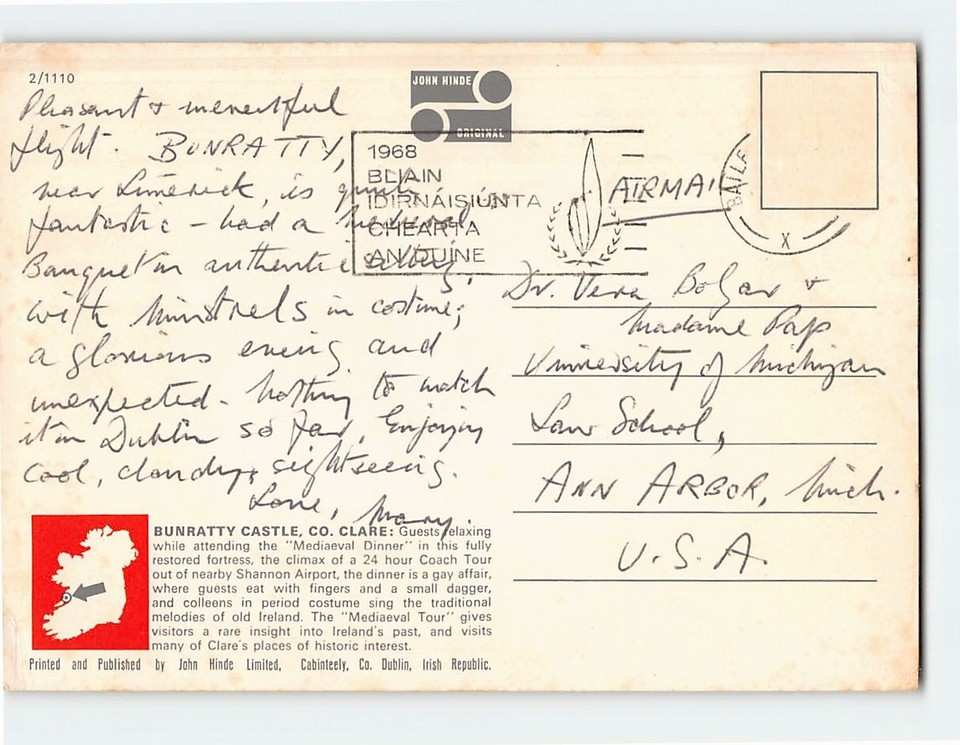 2/1110
JOHN HINDE
ORIGINAL
Pleasant & uneventful
flight. BUNRATTY,
near Limerick, is quite
fantastic - had a medieval
Banquet in authentic setting,
with minstrels in costume;
a glorious evening and
unexpected - nothing to match
it in Dublin so far. Enjoying
cool, cloudy, sightseeing.
Love, Mary.
1968
BLIAIN
IDIRNÁISIÚNTA
CHEARTA
AN DUINE
AIRMAIL
BAILE
X
Dr. Vera Bolgar &
Madame Pap
University of Michigan
Law School,
ANN ARBOR, Mich.
U.S.A.
BUNRATTY CASTLE, CO. CLARE: Guests relaxing
while attending the "Mediaeval Dinner" in this fully
restored fortress, the climax of a 24 hour Coach Tour
out of nearby Shannon Airport, the dinner is a gay affair,
where guests eat with fingers and a small dagger,
and colleens in period costume sing the traditional
melodies of old Ireland. The "Mediaeval Tour" gives
visitors a rare insight into Ireland's past, and visits
many of Clare's places of historic interest.
Printed and Published by John Hinde Limited, Cabinteely, Co. Dublin, Irish Republic.